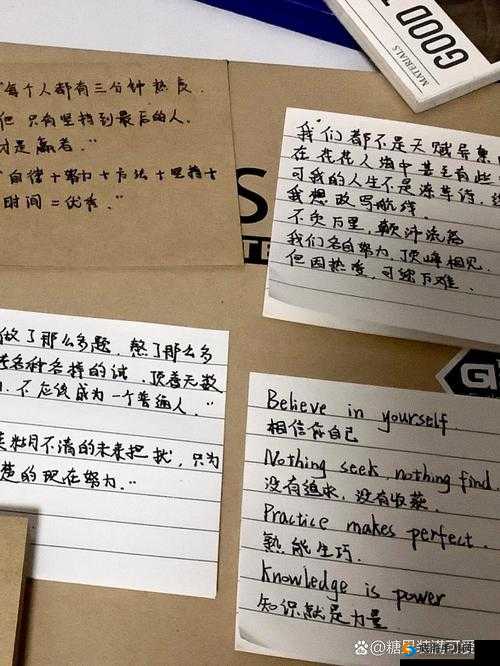 GOOD
MATERIALS
"每个人都有三分钟热度.
但只有坚持到最后的人.
才是赢者."
"自律+努力+方法+坚持+
时间=优秀."
我们都不是天赋异禀
在茫茫人海中甚至有些
可我的人生不是潦草诗,
我想改写航线.
不负万里,
我们各自努力,顶峰相见.
但因热爱,可终万难.
做了那么多题,熬了那么多
各种各样的试,顶着无数
不应该成为一个普通人."
不清的未来担扰,只为
楚的现在努力."
Believe in yourself.
相信你自己
Nothing seek, nothing find.
没有追求,没有收获.
Practice makes perfect.
熟能生巧.
Knowledge is power
知识就是力量.
G
@糖果装满可爱